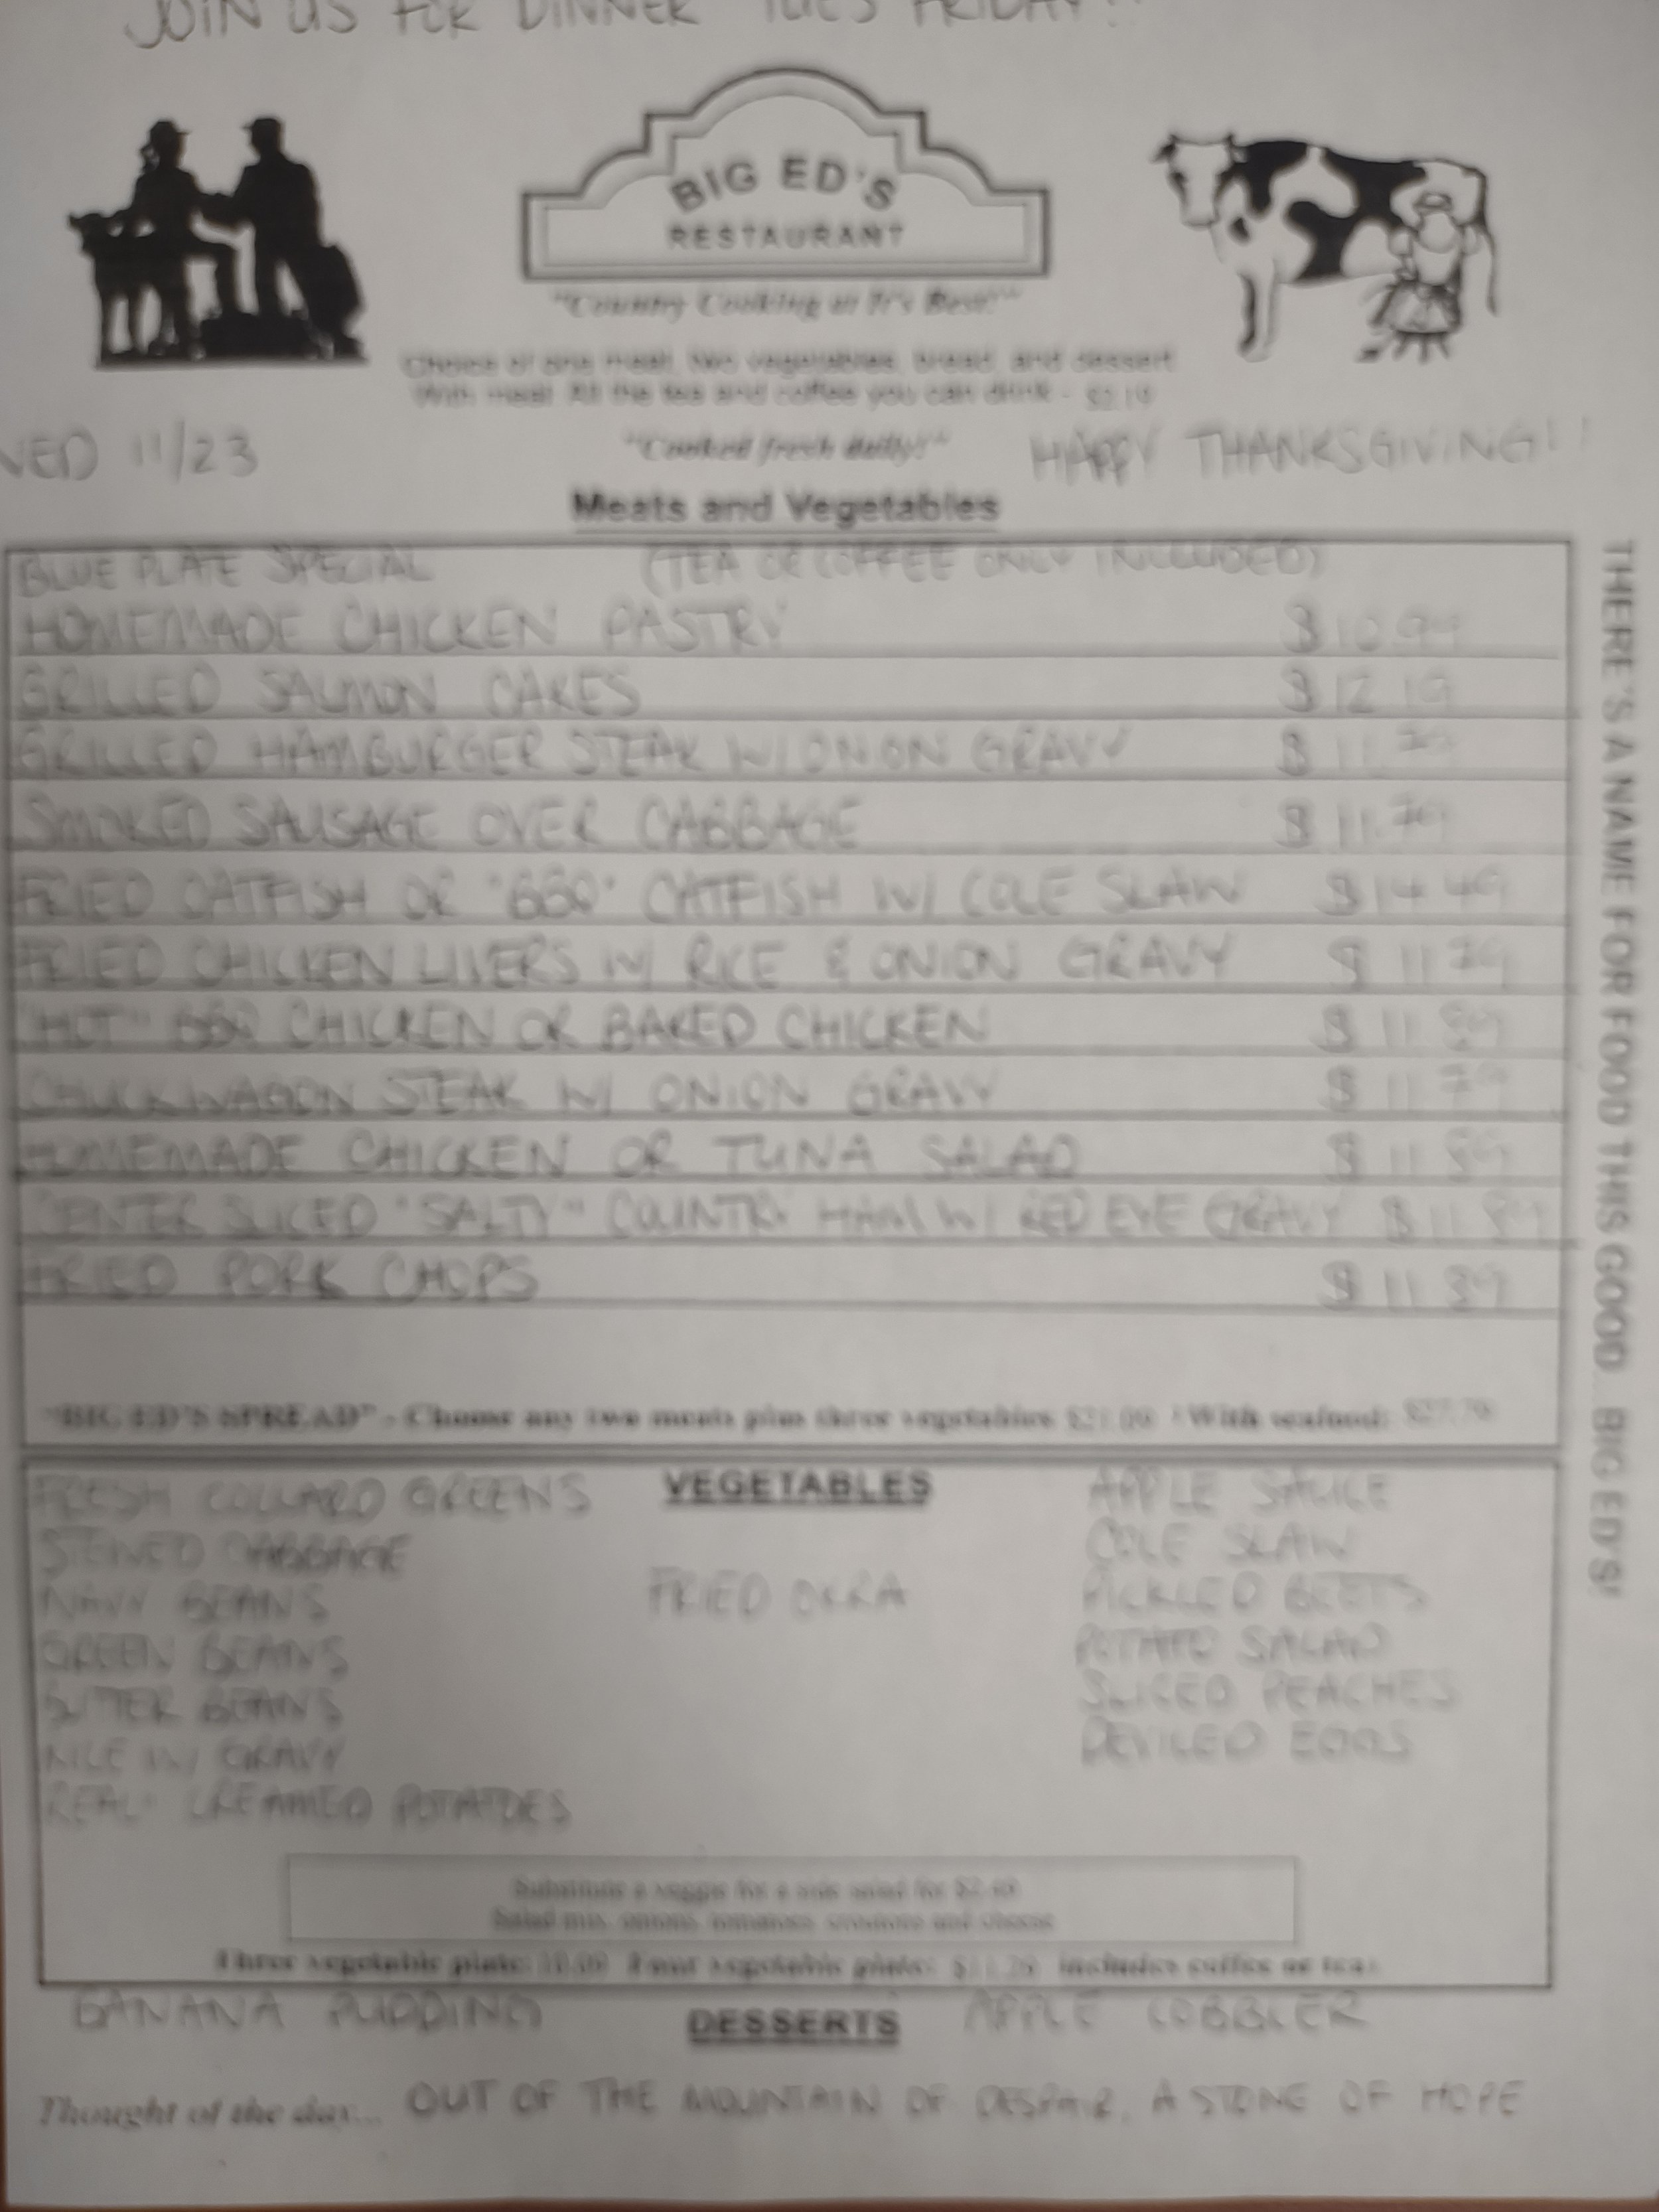 JOIN US FOR DINNER TUES FRIDAY!!
BIG ED'S
RESTAURANT
"Country Cooking at It's Best!"
Choice of one meat, two vegetables, bread, and dessert
With meal: All the tea and coffee you can drink - $2.19
WED 11/23
"Cooked fresh daily!"
HAPPY THANKSGIVING!!
Meats and Vegetables
BLUE PLATE SPECIAL (TEA OR COFFEE ONLY INCLUDED)
HOMEMADE CHICKEN PASTRY $10.99
GRILLED SALMON CAKES $12.19
GRILLED HAMBURGER STEAK W/ ONION GRAVY $11.79
SMOKED SAUSAGE OVER CABBAGE $11.79
FRIED CATFISH OR "BBQ" CATFISH W/ COLE SLAW $14.49
FRIED CHICKEN LIVERS W/ RICE & ONION GRAVY $11.79
"HOT" BBQ CHICKEN OR BAKED CHICKEN $11.89
CHUCKWAGON STEAK W/ ONION GRAVY $11.79
HOMEMADE CHICKEN OR TUNA SALAD $11.89
CENTER SLICED "SALTY" COUNTRY HAM W/ RED EYE GRAVY $11.89
FRIED PORK CHOPS $11.89
"BIG ED'S SPREAD" - Choose any two meats plus three vegetables With seafood:
THERE'S A NAME FOR FOOD THIS GOOD... BIG ED'S!
VEGETABLES
FRESH COLLARD GREENS
STEWED CABBAGE
NAVY BEANS
GREEN BEANS
BUTTER BEANS
RICE W/ GRAVY
"REAL" CREAMED POTATOES
FRIED OKRA
APPLE SAUCE
COLE SLAW
PICKLED BEETS
POTATO SALAD
SLICED PEACHES
DEVILED EGGS
Substitute a veggie for a side salad for
Salad mix, onions, tomatoes, croutons and cheese
Three vegetable plate: Four vegetable plate: includes coffee or tea
DESSERTS
BANANA PUDDING
APPLE COBBLER
Thought of the day... OUT OF THE MOUNTAIN OF DESPAIR, A STONE OF HOPE